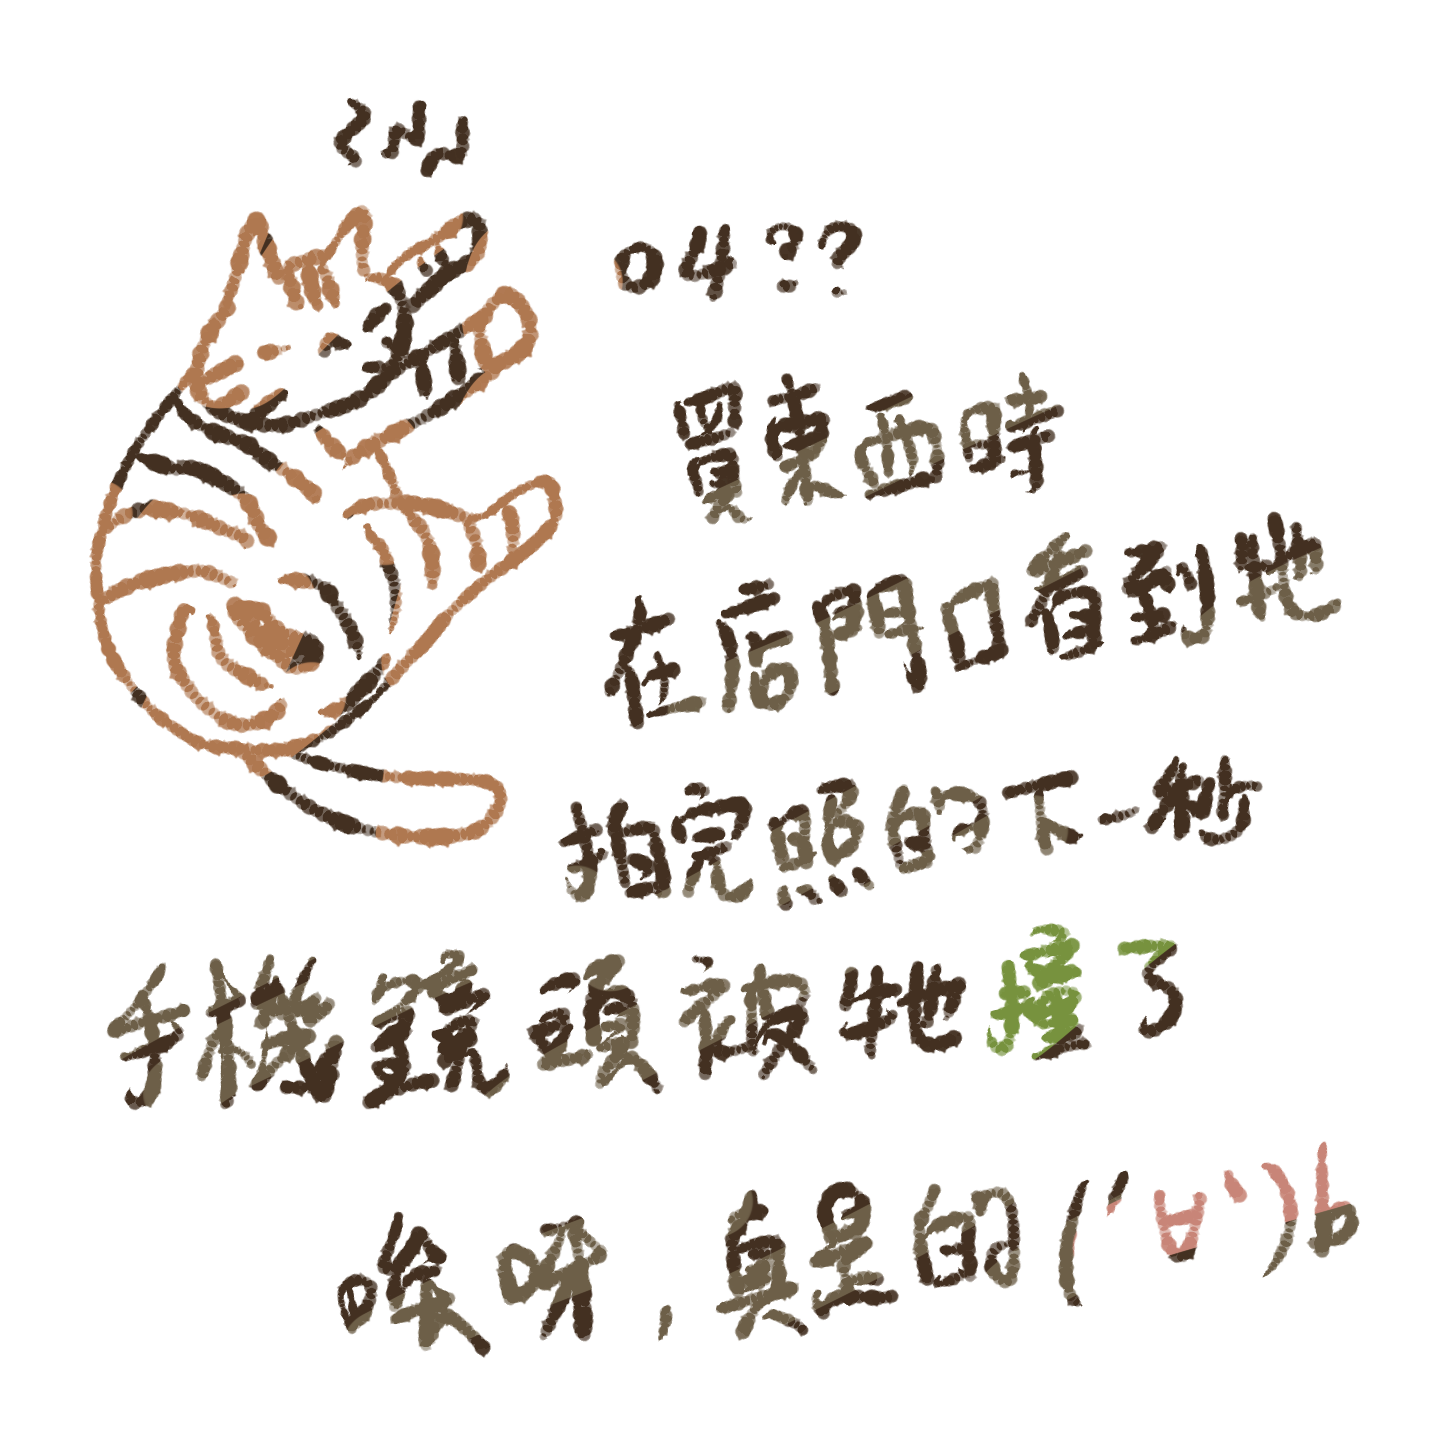 04??
買東西時
在店門口看到牠
拍完照的下一秒
手機鏡頭被牠撞了
唉呀,真是的(´∀`)b